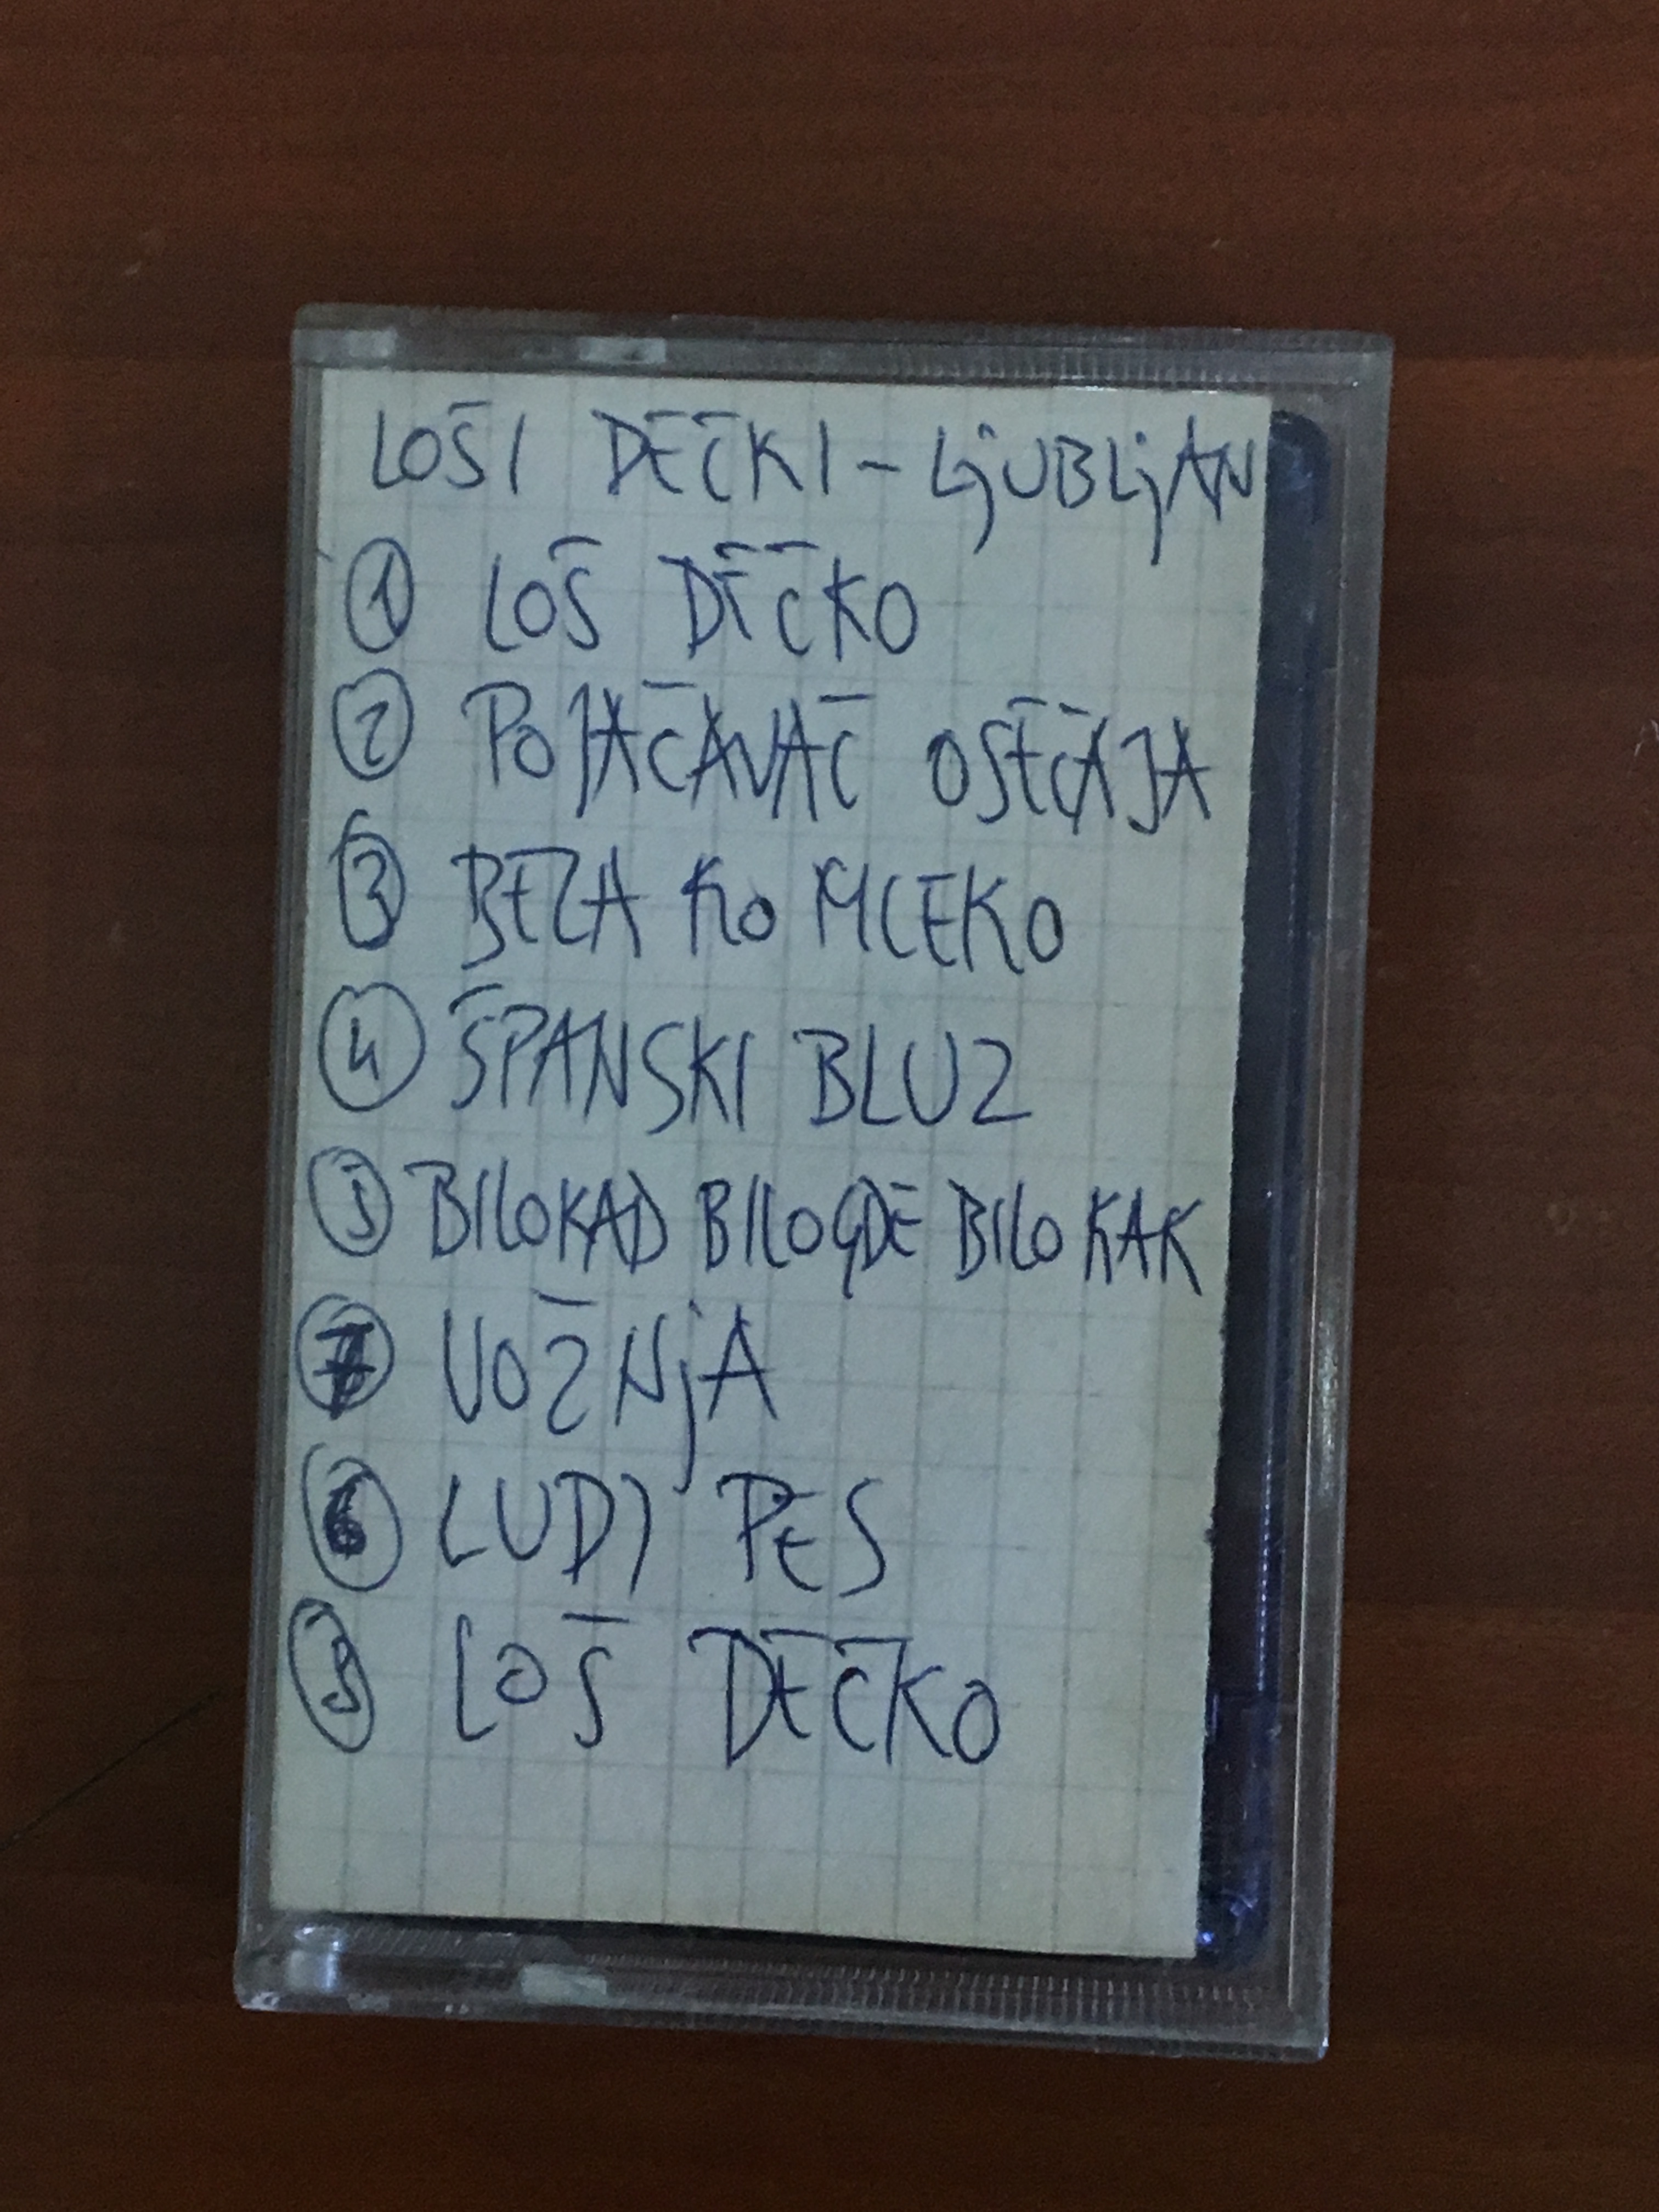 LOŠI DEČKI - LjUBLjAN
① LOŠ DEČKO
② POJAČAVAČ OSEĆAJA
③ BEZA KO MLEKO
④ ŠPANSKI BLUZ
⑤ BILOKAD BILOGDE BILO KAK
⑦ VOŽNjA
⑥ LUDI PES
LOŠ DEČKO